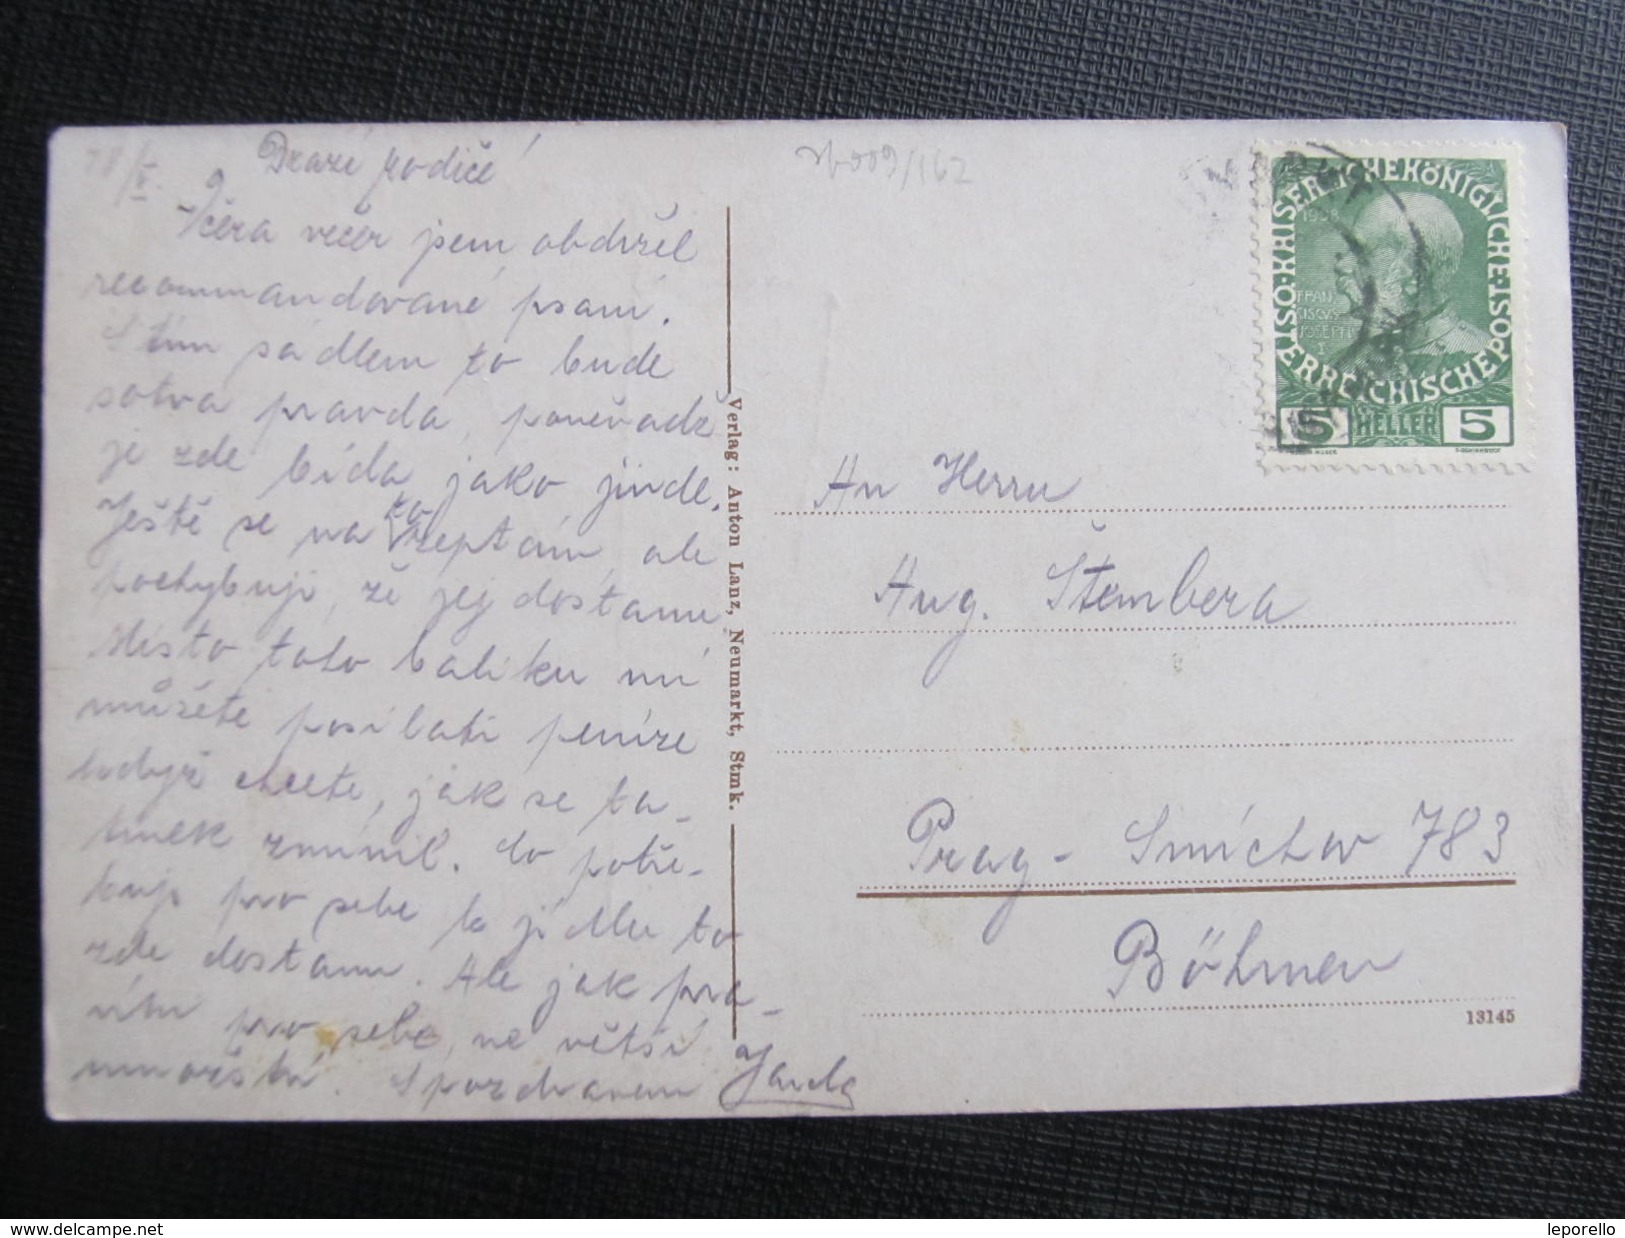 28/V.
Drazí rodiče!
Včera večer jsem obdržel
recommandované psaní.
S tím sádlem to bude
sotva pravda, poněvadž
je zde bída jako jinde.
Ještě se na to zeptám, ale
pochybuji, že jej dostanu
Místo toho balíku mi
můžete posílati peníze
když chcete, jak se ta-
tínek zmínil. Co potře-
buji pro sebe k jídlu to
zde dostanu. Ale jak pra-
vím pro sebe, ne větší
množství. S pozdravem Jarda
Verlag: Anton Lanz, Neumarkt, Stmk.
009/162
KAISERLICHE KÖNIGLICHE
ÖSTERREICHISCHE POST
1908
FRAN
CISCVS
JOSEPH I
5 HELLER 5
An Herrn
Aug. Štembera
Prag - Smíchow 783
Böhmen
13145
delcampe.net
leporello